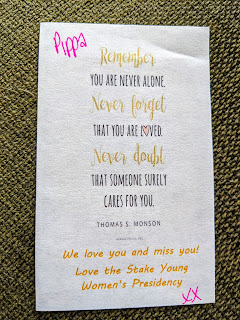 Pippa
Remember
YOU ARE NEVER ALONE.
Never forget
THAT YOU ARE LOVED.
Never doubt
THAT SOMEONE SURELY
CARES FOR YOU.
THOMAS S. MONSON
We love you and miss you!
Love the Stake Young
Women's Presidency
xx